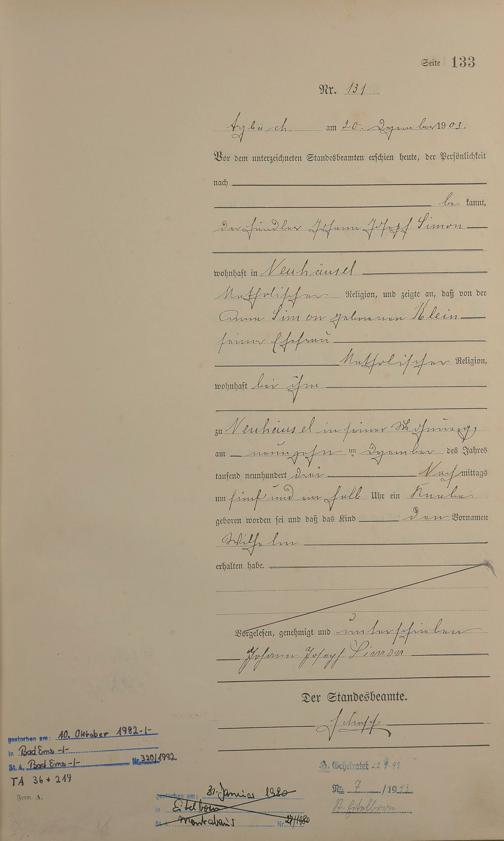 Seite 133
Nr. 131
am 20. Dezember 1903.
Vor dem unterzeichneten Standesbeamten erschien heute, der Persönlichkeit
nach
be kannt,
der Händler Johann Josef Simon
wohnhaft in Neuhäusel
Katholischer Religion, und zeigte an, daß von der
Anna Simon geborenen Klein
seiner Ehefrau
Katholischer Religion,
wohnhaft bei ihm
zu Neuhäusel in seiner Wohnung,
am neunzehn ten Dezember des Jahres
tausend neunhundert drei Nach mittags
um fünf und ein halb Uhr ein Knabe
geboren worden sei und daß das Kind den Vornamen
Wilhelm
erhalten habe.
Vorgelesen, genehmigt und unterschrieben
Johann Joseph Simon
Der Standesbeamte.
gestorben am: 10. Oktober 1982-/-
in Bad Ems -/-
St. A. Bad Ems -/- Nr.
TA 36 + 219
Form. A.
gestorben am: 31. Januar 1980
in Eitelborn
St. A. Montabaur Nr.
Geheiratet
Nr. 7 /19
St. Eitelborn